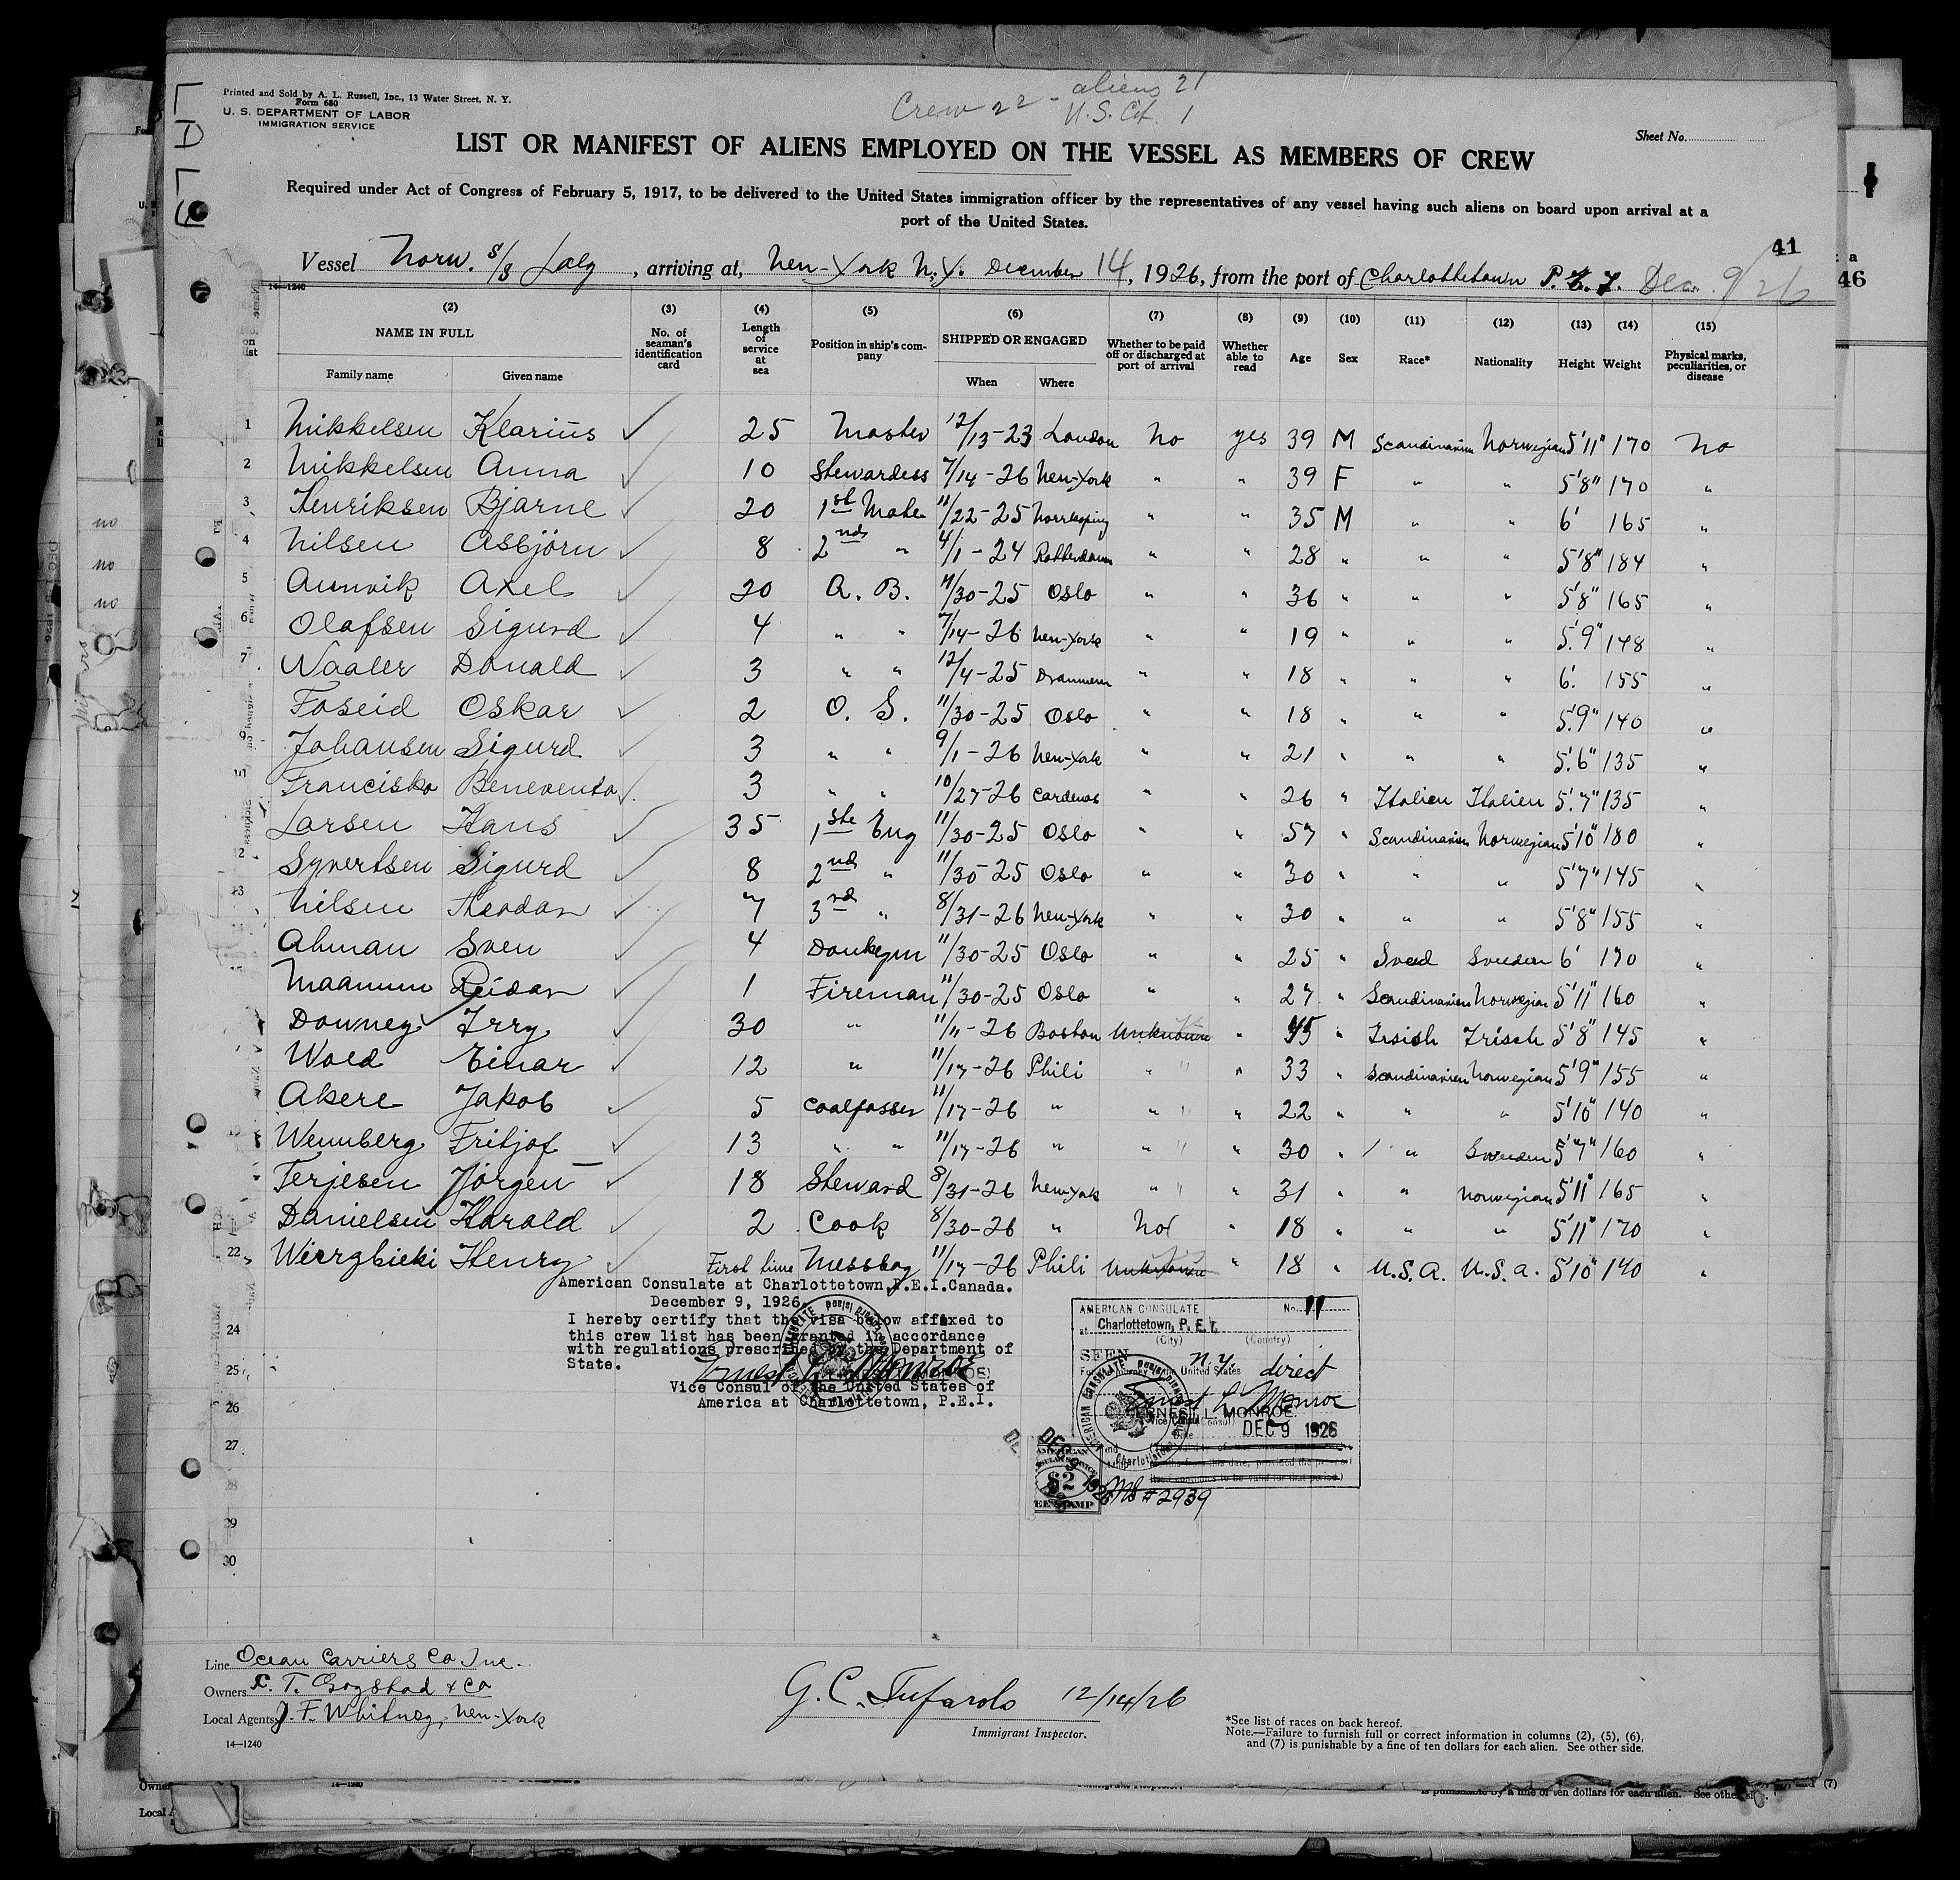 LALY
Printed and Sold by A. L. Russell, Inc., 13 Water Street, N. Y.
Form 680
U. S. DEPARTMENT OF LABOR
IMMIGRATION SERVICE
Crew 22 - aliens 21
U.S. Cit. 1
Sheet No.
LIST OR MANIFEST OF ALIENS EMPLOYED ON THE VESSEL AS MEMBERS OF CREW
Required under Act of Congress of February 5, 1917, to be delivered to the United States immigration officer by the representatives of any vessel having such aliens on board upon arrival at a
port of the United States.
41
46
Vessel Norw. S/S Laly, arriving at, New-York N.Y. December 14, 1926, from the port of Charlottetown P.E.I. Dec. 9/26
14—1240
(2) (3) (4) (5) (6) (7) (8) (9) (10) (11) (12) (13) (14) (15)
NAME IN FULL No. of seaman's identification card Length of service at sea Position in ship's company SHIPPED OR ENGAGED Whether to be paid off or discharged at port of arrival Whether able to read Age Sex Race* Nationality Height Weight Physical marks, peculiarities, or disease
Family name Given name When Where
1 Mikkelsen Klarius ✓ 25 Master 12/13-23 London No yes 39 M Scandinavien Norwegian 5'11" 170 No
2 Mikkelsen Anna ✓ 10 Stewardess 7/14-26 New-York " " 39 F " " 5'8" 170 "
3 Henriksen Bjarne ✓ 20 1st Mate 11/22-25 Norrkoping " " 35 M " " 6' 165 "
4 Nilsen Asbjörn ✓ 8 2nd " 4/1-24 Rotterdam " " 28 " " " 5'8" 184 "
5 Aunvik Axel ✓ 20 A. B. 11/30-25 Oslo " " 36 " " " 5'8" 165 "
6 Olafsen Sigurd ✓ 4 " " 7/14-26 New-York " " 19 " " " 5'9" 148 "
7 Waaler Donald ✓ 3 " " 12/4-25 Drammen " " 18 " " " 6' 155 "
Foseid Oskar ✓ 2 O. S. 11/30-25 Oslo " " 18 " " " 5'9" 140 "
9 Johansen Sigurd ✓ 3 " " 9/1-26 New-York " " 21 " " " 5'6" 135 "
10 Francisko Benevento ✓ 3 " " 10/27-26 Cardenas " " 26 " Italien Italien 5'7" 135 "
Larsen Hans ✓ 35 1ste Eng 11/30-25 Oslo " " 57 " Scandinavien Norwegian 5'10" 180 "
12 Syvertsen Sigurd ✓ 8 2nd " 11/30-25 Oslo " " 30 " " " 5'7" 145 "
13 Nilsen ✓ 7 3rd " 8/31-26 New-York " " 30 " " " 5'8" 155 "
Ahman Sven ✓ 4 Donkeymn 11/30-25 Oslo " " 25 " Sved Sweden 6' 170 "
Maanum Reidar ✓ 1 Fireman 11/30-25 Oslo " " 27 " Scandinavien Norwegian 5'11" 160 "
Downey Irry ✓ 30 " 11/11-26 Boston Unknown " 45 " Irsish Irisch 5'8" 145 "
Wold Einar ✓ 12 " 11/17-26 Phili " " 33 " Scandinavien Norwegian 5'9" 155 "
Akere Jakob ✓ 5 Coalpasser 11/17-26 " " " 22 " " " 5'10" 140 "
Wennberg Fritjof ✓ 13 " " 11/17-26 " " " 30 " " Sweden 5'7" 160 "
Terjesen Jörgen ✓ 18 Steward 8/31-26 New-York " " 31 " " Norwegian 5'11" 165 "
Danielsen Harald ✓ 2 Cook 8/30-26 " No " 18 " " " 5'11" 170 "
22 Wierzbicki Henry ✓ First time Messboy 11/17-26 Phili Unknown " 18 " U.S.A. U.S.A. 5'10" 140 "
American Consulate at Charlottetown,P.E.I.Canada.
December 9, 1926.
I hereby certify that the visa below affixed to
this crew list has been granted in accordance
with regulations prescribed by the Department of
State.
Ernest L. Monroe
Vice Consul of the United States of
America at Charlottetown, P.E.I.
24
25
26
27
28
29
30
AMERICAN CONSULATE No. 11
at Charlottetown, P. E. I.
(City) (Country)
SEEN
N.Y. direct
United States
Ernest L. Monroe
ERNEST L. MONROE
Vice Consul
Date DEC 9 1926
AMERICAN CONSULATE Charlottetown
DEC 9 1926
AMERICAN
$2
FEE STAMP
#2939
Line Ocean Carriers Co Inc.
Owners T. Gogstad & Co
Local Agents J. F. Whitney, New-York
14—1240
G. C. Tufarolo 12/14/26
Immigrant Inspector.
*See list of races on back hereof.
Note.—Failure to furnish full or correct information in columns (2), (5), (6),
and (7) is punishable by a fine of ten dollars for each alien. See other side.
no
no
no
is punishable by a fine of ten dollars for each alien. See other